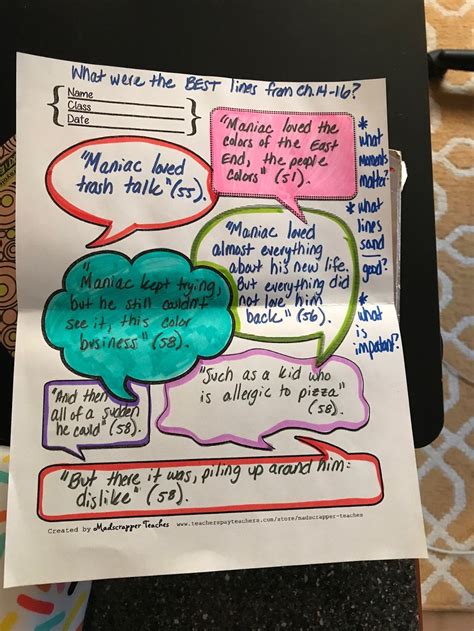 What were the BEST lines from ch.14-16?
Name
Class
Date
"Maniac loved the
colors of the East
End, the people
colors" (51).
"Maniac loved
trash talk" (55).
* what
moments
matter?
* what
lines
sand
good?
* what
is
impotant?
"Maniac loved
almost everything
about his new life.
But everything did
not love him
back" (56).
"Maniac kept trying,
but he still couldn't
see it, this color
business" (58).
"Such as a kid who
is allergic to pizza"
(58).
"And then
all of a sudden
he could" (58).
"But there it was, piling up around him:
dislike" (58).
Created by Madscrapper Teaches www.teacherspayteachers.com/store/madscrapper-teaches